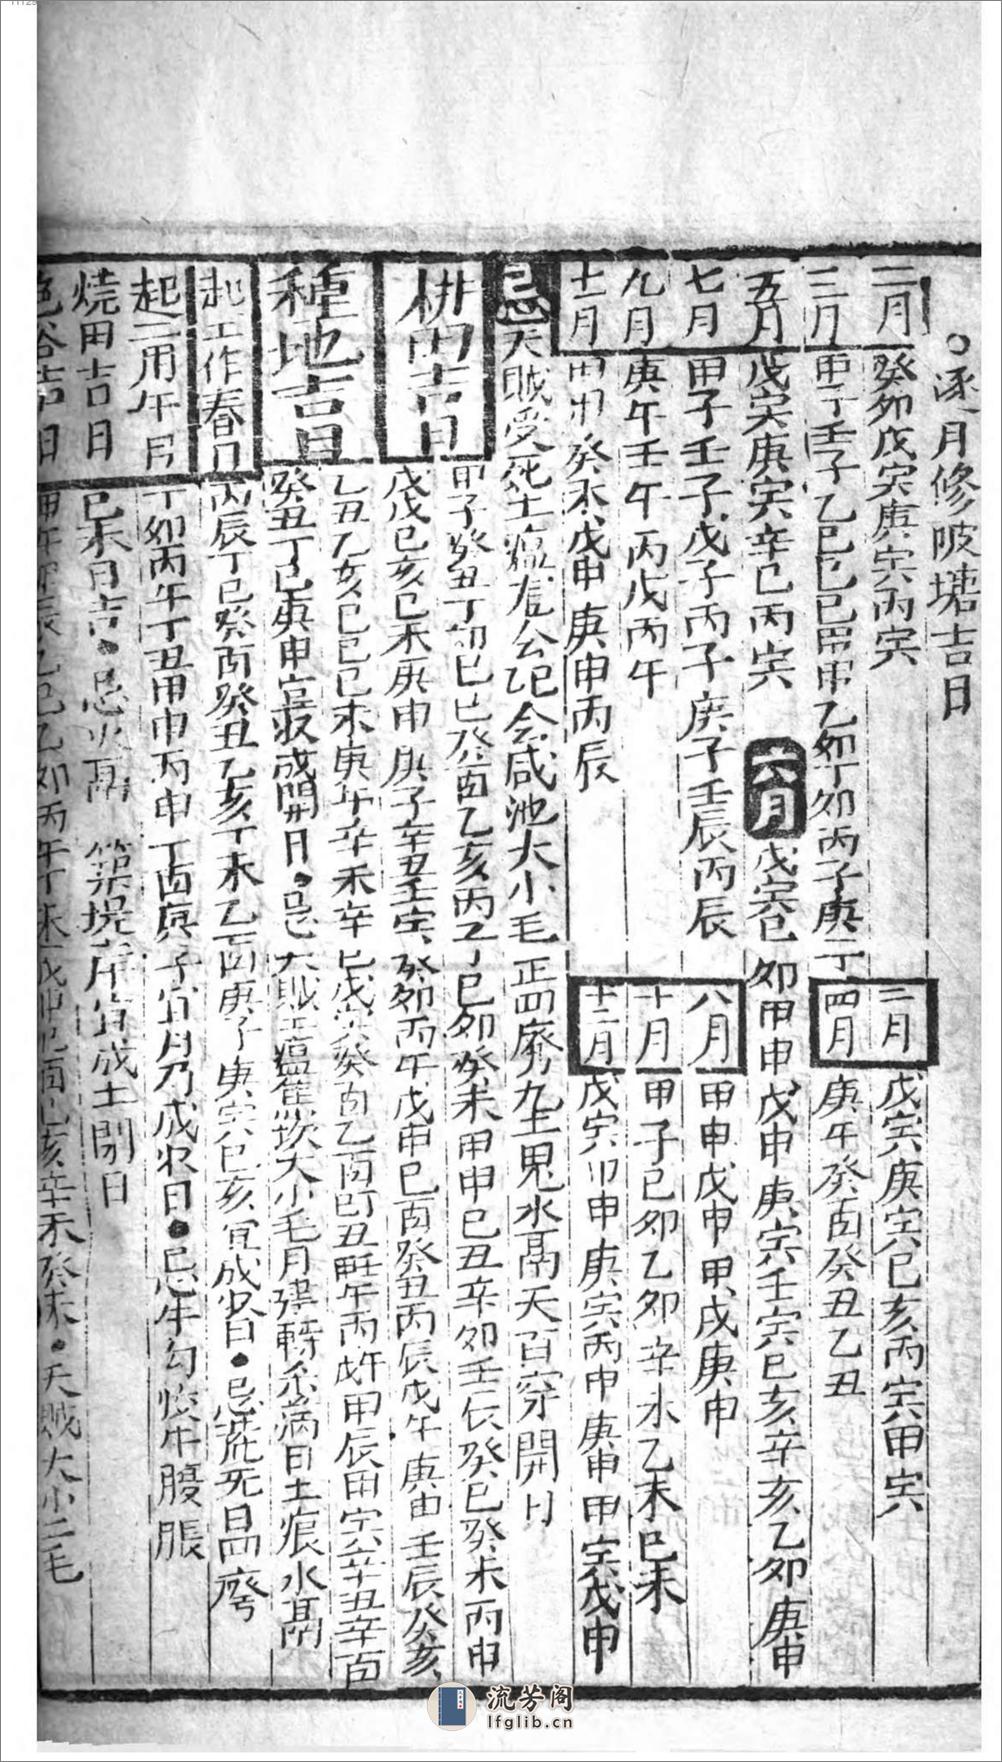 ○逐月修陂塘吉日
二月 癸卯戊寅庚寅丙寅 二月 戊寅庚寅己亥丙寅甲寅
三月 甲子壬子乙巳己巳甲申乙卯丁卯丙子庚子 四月 庚午癸酉癸丑乙丑
五月 戊寅庚寅辛巳丙寅 六月 戊寅 卯甲申戊申庚寅壬寅己亥辛亥乙卯庚申
七月 甲子壬子戊子丙子庚子壬辰丙辰 八月 甲申戊申甲戌庚申
九月 庚午壬午丙戊丙午 十月 甲子己卯乙卯辛 乙未己未
十一月 癸未戊申庚申丙辰 十二月 戊寅 申庚寅丙申庚申甲寅戊申
忌 天賊受死土瘟 公 会咸池大小毛正四廢九土鬼水鬲天百穿開日
耕田吉日 甲子癸丑丁卯己巳癸酉乙亥丙子丁巳卯癸未甲申巳丑辛卯壬辰癸巳癸未丙申
戊戌己亥己未庚申庚子辛丑壬寅癸卯丙午戊申己酉癸丑丙辰戊午庚申壬辰癸亥
種地吉日 乙丑乙亥己巳己未庚午辛未辛巳戊 癸酉乙酉 丑 午丙 甲辰甲寅辛丑辛酉
癸丑丁巳庚申宜收成開日●忌天賊土瘟焦坎大小毛月建 滿日土痕水鬲
起工作春日 丙辰丁巳癸酉癸丑乙亥丁未乙酉庚子庚寅己亥宜成收日●忌荒死日四廢
起工用午月 丁卯丙午丁丑甲申丙申丁酉庚子宜月乃成收日●忌牛勾絞牛腹脹
燒田吉日 己未日吉●忌火鬲 築堤岸宜成土閉日
吉日 甲午 辰乙巳乙卯丙午丁未戊申己酉己亥辛未癸未●天賊大小二毛
流芳阁
lfglib.cn